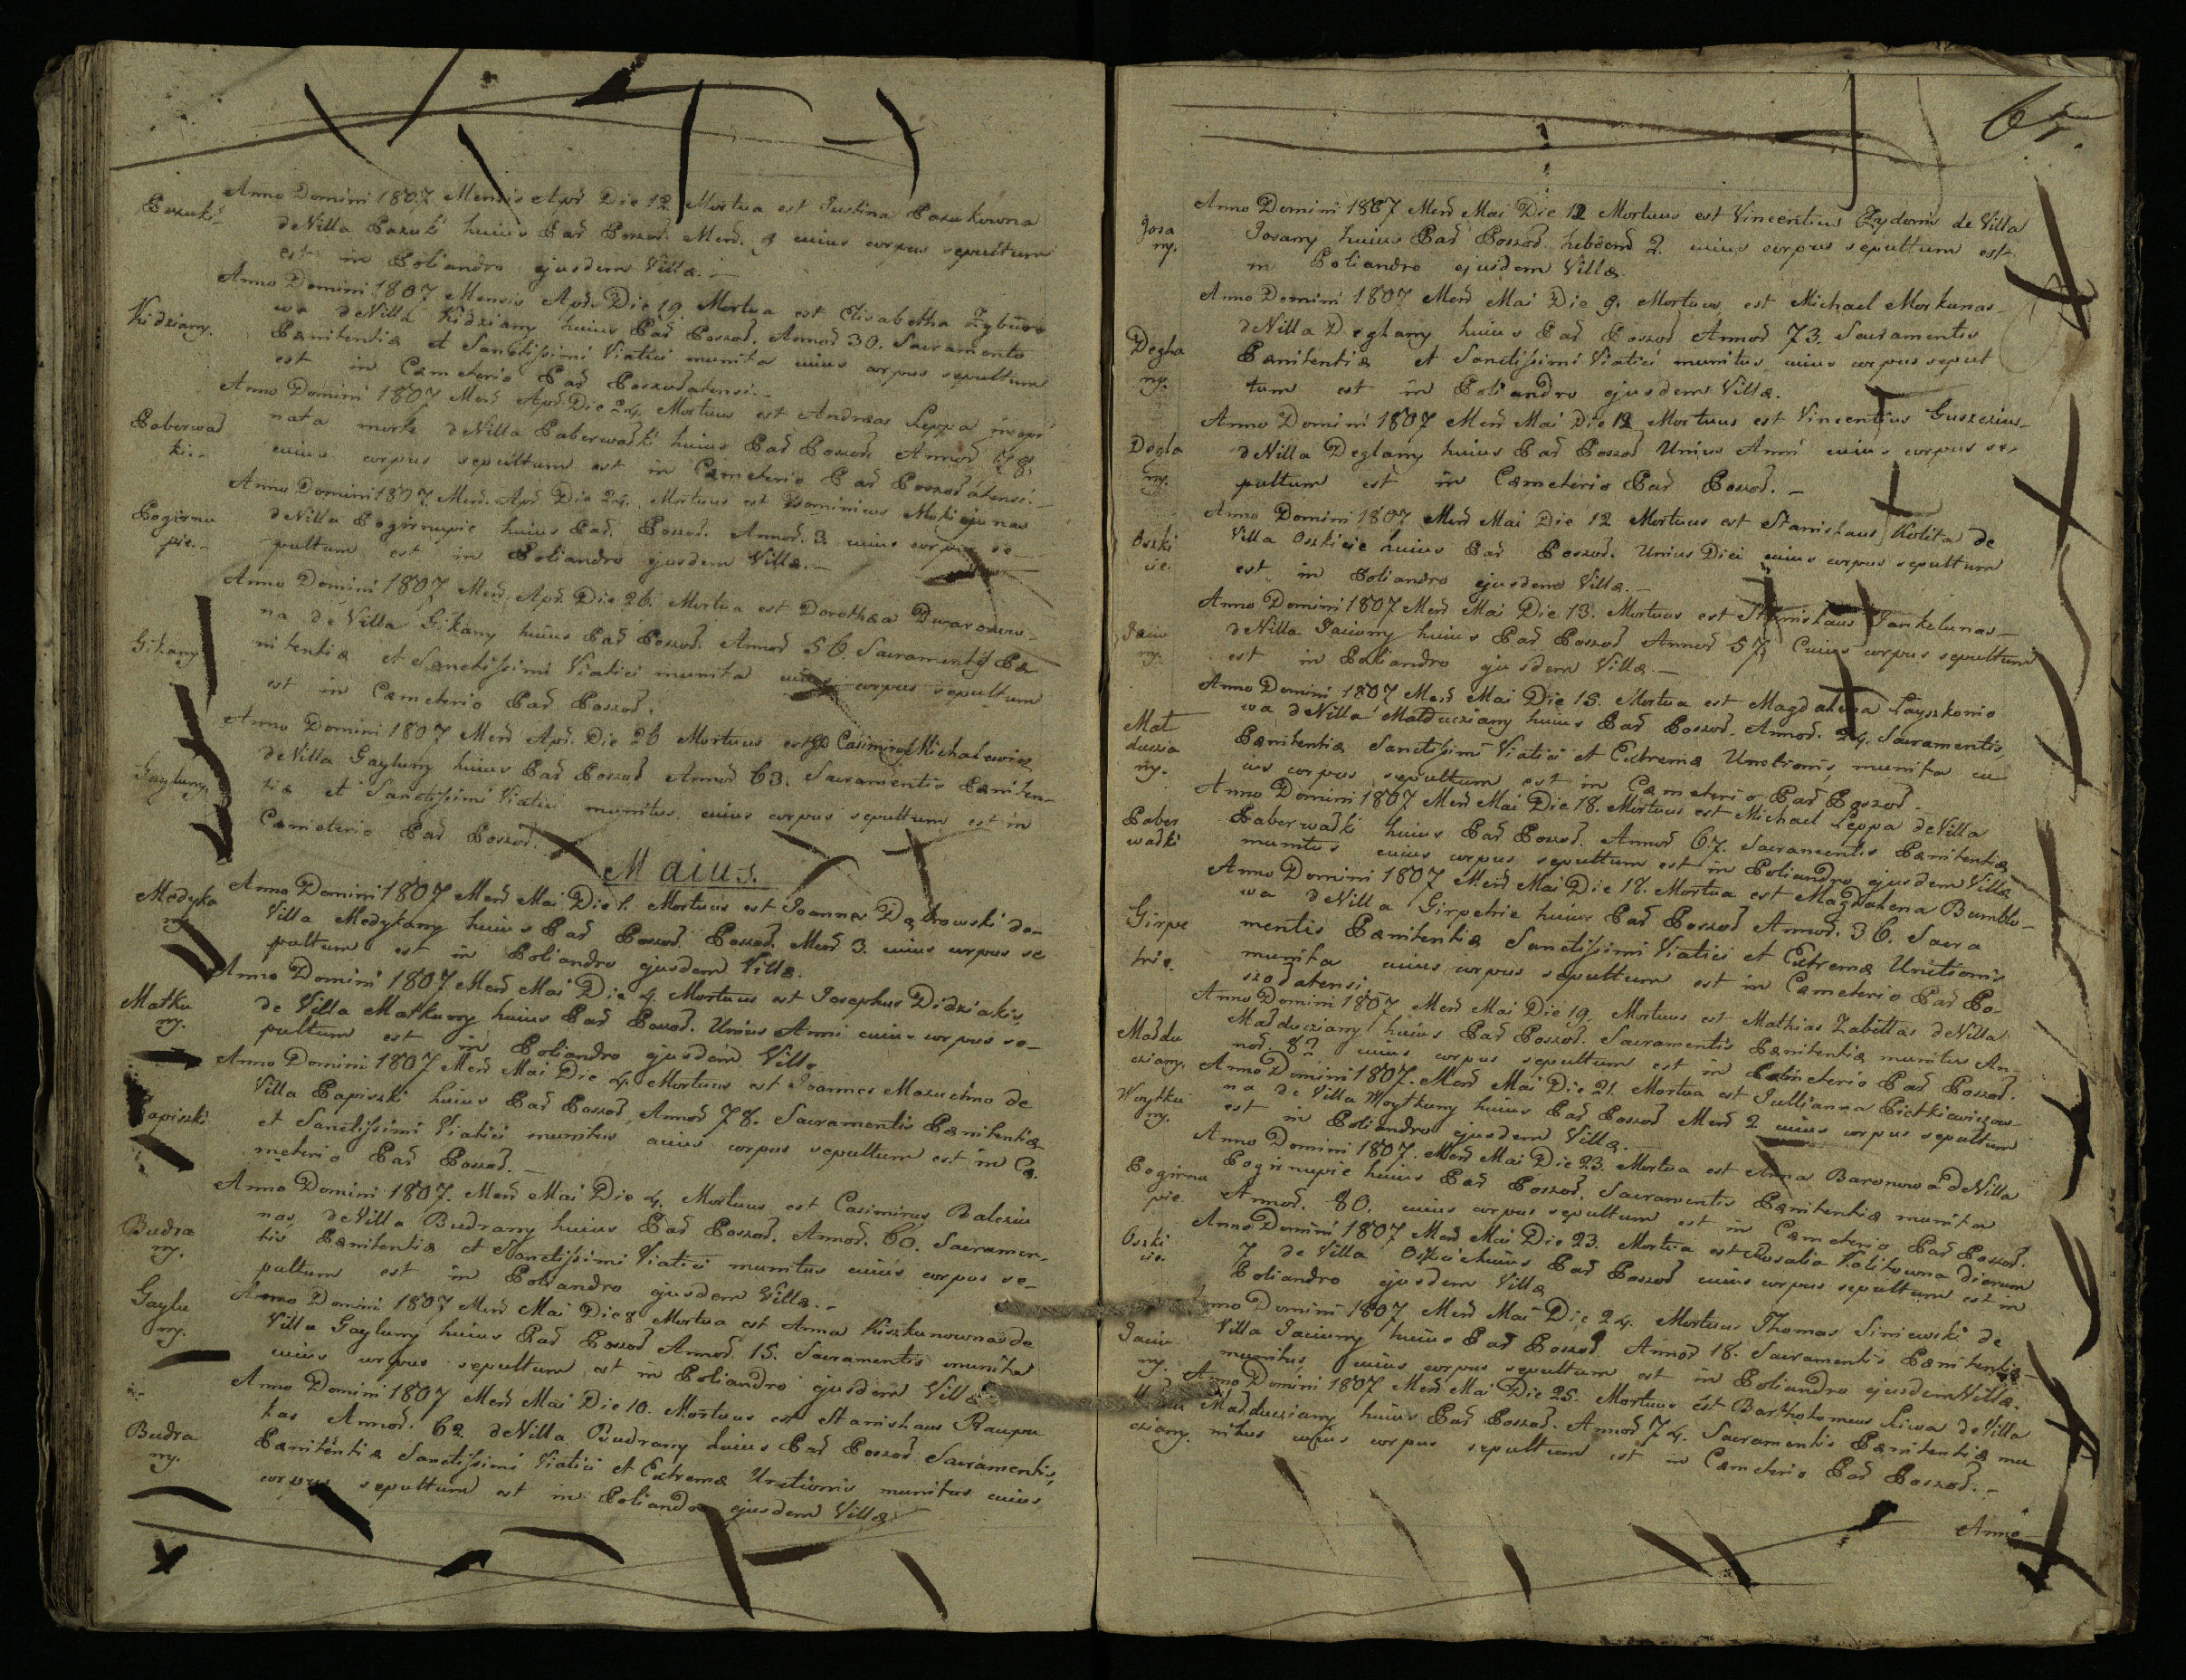 Pozuki
Anno Domini 1807 Mensis Apr. Die 12 Mortua est Justina Pazukowna
de Villa Pazuki huius Par Poszod. Mens. 9 cuius corpus sepultum
est in Poliandro ejusdem Villæ.
Kidziany.
Anno Domini 1807 Mensis Apr. Die 19. Mortua est Elisabetha Zybuio
wa de Villa Kidziany huius Par Poszod. Annor 30. Sacramento
Pænitentiæ et Sanctissimi Viatici munita cuius corpus sepultum
est in Cæmeterio Par Poszodatensi.
Poberwad
ki.
Anno Domini 1807 Mens Apr. Die 24. Mortuus est Andræas Leppa inopi
nata morte de Villa Paberwadki huius Par Poszod. Annor 48.
cuius corpus sepultum est in Cæmeterio Par Poszodatensi.
Pogirnu
pie.
Anno Domini 1807. Mens. Apr. Die 24. Mortuus est Dominicus Mekiejunas
de Villa Pogirnupie huius Par. Poszod. Annor. 3. cuius corpus se
pultum est in Poliandro ejusdem Villæ.
Gikany
Anno Domini 1807 Mens. Apr. Die 26. Mortua est Dorothæa Dwaronow
na de Villa Gikany huius Par Poszod. Annor 56. Sacramentis Pæ
nitentiæ et Sanctissimi Viatici munita cuius corpus sepultum
est in Cæmeterio Par Poszod.
Gayluny.
Anno Domini 1807 Mens Apr. Die 26 Mortuus est Casimirus Michalewicz
de Villa Gayluny huius Par Poszod Annor 63. Sacramentis Pæniten-
tiæ et Sanctissimi Viatici munitus, cuius corpus sepultum est in
Cæmeterio Par Poszod.
Maius.
Medyka
ny
Anno Domini 1807 Mens Mai Die 1. Mortuus est Joannes Dąbrowski de
Villa Medykany huius Par Poszod. Poszod. Mens 3. cuius corpus se
pultum est in Poliandro ejusdem Villæ.
Matku
ny.
Anno Domini 1807 Mens Mai Die 4. Mortuus est Josephus Didziakis
de Villa Matkuny huius Par Poszod. Unius Anni cuius corpus se-
pultum est in Poliandro ejusdem Villæ.
Papiszki
Anno Domini 1807 Mens Mai Die 4. Mortuus est Joannes Mazuchno de
Villa Papiszki huius Par Poszod, Annor 78. Sacramentis Pænitentiæ
et Sanctissimi Viatici munitus cuius corpus sepultum est in Cæ
meterio Par Poszod.
Budra
ny.
Anno Domini 1807. Mens Mai Die 4. Mortuus est Casimirus Balcziu
nas de Villa Budrany huius Par Poszod. Annor. 60. Sacramen-
tis Pænitentiæ et Sanctissimi Viatici munitus cuius corpus se-
pultum est in Poliandro ejusdem Villæ.
Gaylu
ny.
Anno Domini 1807 Mens Mai Die 8 Mortua est Anna Kiszkunowna de
Villa Gayluny huius Par Poszod Annor. 15. Sacramentis munita
cuius corpus sepultum est in Poliandro ejusdem Villæ
Budra
ny.
Anno Domini 1807 Mens Mai Die 10. Mortuus est Stanislaus Raupu
kas Annor. 62 de Villa Budrany huius Par Poszod Sacramentis
Pænitentiæ Sanctissimi Viatici et Extremæ Unctionis munitus cuius
corpus sepultum est in Poliandro ejusdem Villæ
65.
Josa
ny.
Anno Domini 1807 Mens Mai Die 12 Mortuus est Vincentius Zydonis de Villa
Josany huius Par Poszod. hebdom 2. cuius corpus sepultum est
in Poliandro ejusdem Villæ.
Degla
ny.
Anno Domini 1807 Mens Mai Die 9. Mortuus est Michael Morkunas
de Villa Deglany huius Par Poszod Annor 73. Sacramentis
Pænitentiæ et Sanctissimi Viatici munitus cuius corpus sepul
tum est in Poliandro ejusdem Villæ.
Degla
ny.
Anno Domini 1807 Mens Mai Die 12 Mortuus est Vincentius Guszczius
de Villa Deglany huius Par Poszod Unius Anni cuius corpus se,
pultum est in Cæmeterio Par Poszod.
Oszki
cie.
Anno Domini 1807 Mens Mai Die 12 Mortuus est Stanislaus Kolita de
Villa Oszkicie huius Par Poszod. Unius Diei cuius corpus sepultum
est in Poliandro ejusdem Villæ.
Jaciu
ny.
Anno Domini 1807 Mens Mai Die 13. Mortuus est Stanislaus Jankelunas
de Villa Jaciuny huius Par Poszod Annor 57, Cuius corpus sepultum
est in Poliandro ejusdem Villæ.
Mał
duczia
ny.
Anno Domini 1807 Mens Mai Die 15. Mortua est Magdalena Layszkonio
wa de Villa Małduczziany huius Par Poszod. Annor. 24. Sacramentis,
Pænitentiæ Sanctissimi Viatici et Extremæ Unctionis, munita cu
ius corpus sepultum est in Cæmeterio Par Poszod.
Paber
wadki
Anno Domini 1807 Mens Mai Die 18. Mortuus est Michael Leppa de Villa
Paberwadki huius Par Poszod. Annor 67. Sacramentis Pænitentiæ
munitus cuius corpus sepultum est in Poliandro ejusdem Villæ
Girpe
trie.
Anno Domini 1807 Mens Mai Die 18. Mortua est Magdalena Bumblo-
wa de Villa Girpetrie huius Par Poszod Annor. 36. Sacra
mentis Pænitentiæ Sanctissimi Viatici et Extremæ Unctionis
munita cuius corpus sepultum est in Cæmeterio Par Po-
szodatensi.
Maddu
cziany.
Anno Domini 1807 Mens Mai Die 19. Mortuus est Mathias Zabiłłas de Villa
Madducziany huius Par Poszod. Sacramentis Pænitentiæ munitus An-
nor. 82 cuius corpus sepultum est in Cæmeterio Par Poszod.
Woytku
ny.
Anno Domini 1807. Mens Mai Die 21. Mortua est Jullianna Pietkiewiczow
na de Villa Woytkuny huius Par Poszod Mens 2 cuius corpus sepultum
est in Poliandro ejusdem Villæ.
Pogirnu
pie.
Anno Domini 1807. Mens Mai Die 23. Mortua est Anna Baronowa de Villa
Pogirnupie huius Par Poszod. Sacramentis Pænitentiæ munita
Annor. 80. cuius corpus sepultum est in Cæmeterio Par Poszod.
Oszki
cie.
Anno Domini 1807 Mens Mai Die 23. Mortua est Rosalia Kolitowna dierum
7 de Villa Oszkicie huius Par Poszod cuius corpus sepultum est in
Poliandro ejusdem Villæ
Jaciu
ny.
Anno Domini 1807 Mens Mai Die 24. Mortuus Thomas Siniewski de
Villa Jaciuny huius Par Poszod Annor 18. Sacramentis Pænitentiæ
munitus cuius corpus sepultum est in Poliandro ejusdem Villæ.
cziany.
Anno Domini 1807 Mens Mai Die 25. Mortuus est Bartholomeus Liwa de Villa
Madducziany huius Par Poszod. Annor 74. Sacramentis Pænitentiæ mu
nitus cuius corpus sepultum est in Cæmeterio Par Poszod.
Anno